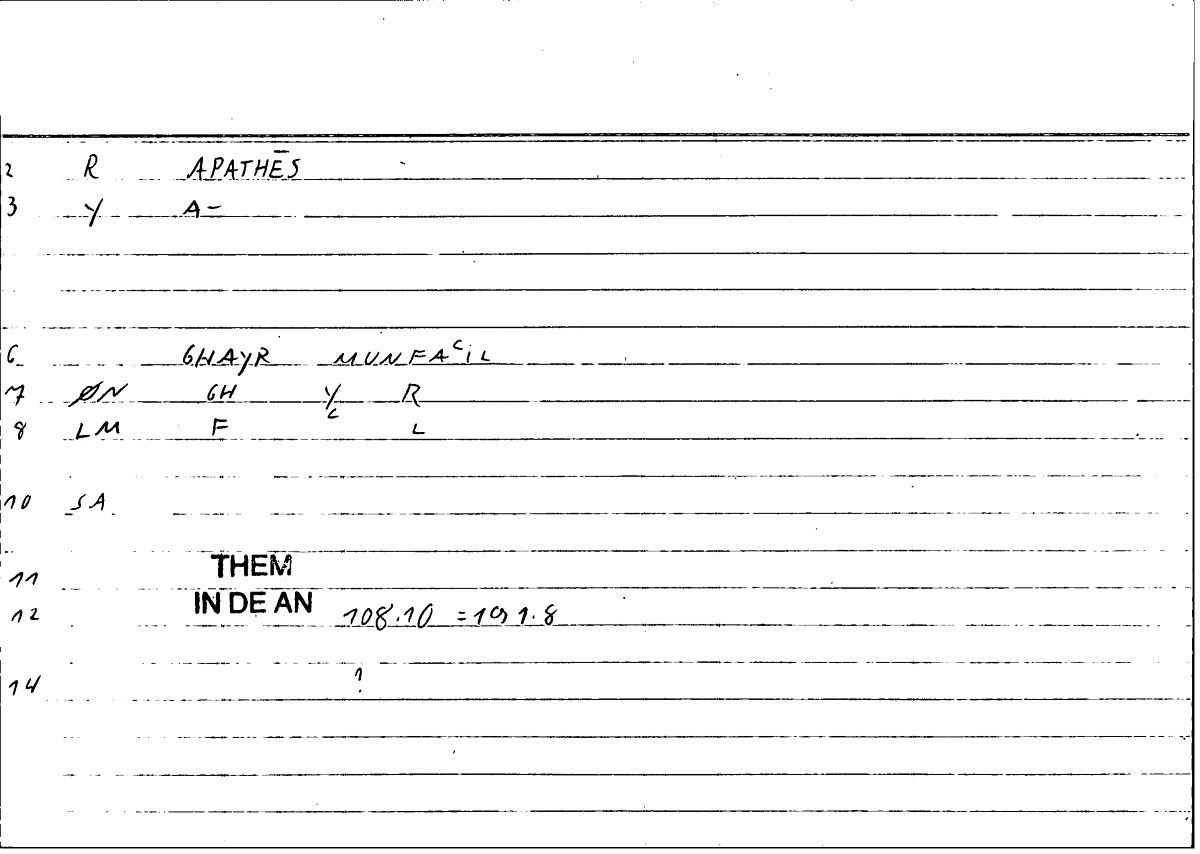 2 R APATHĒS
3 Y A-
6 GHAYR MUNFAᶜIL
7 ØN GH Y R
8 LM F ᶜ L
10 SA
11 THEM
12 IN DE AN 108.10 =191.8
14 !